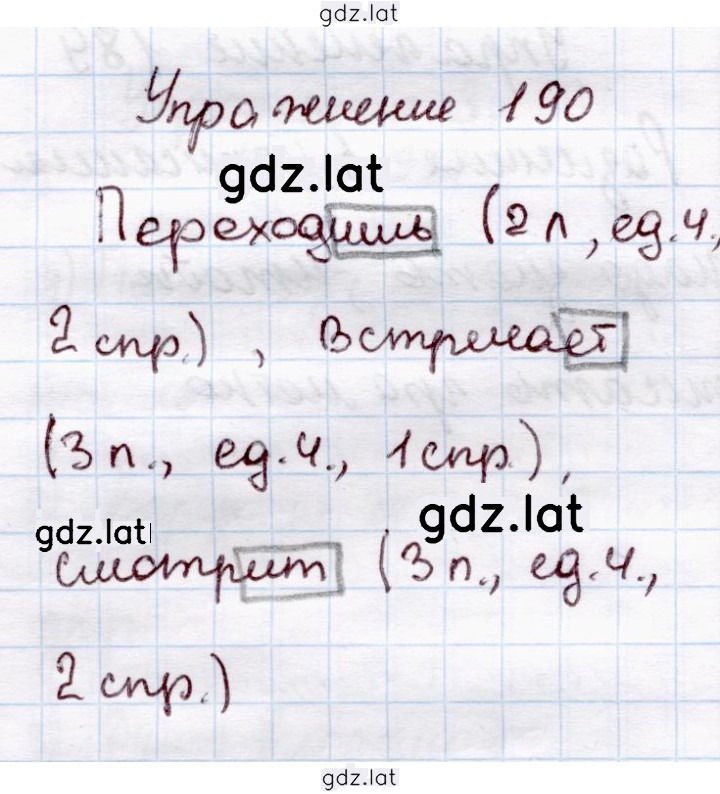 gdz.lat
Упражнение 190
gdz.lat
Переходишь (2 л, ед.ч.,
2 спр.), встречает
(3 л., ед.ч., 1 спр.),
gdz.lat
gdz.lat
смотрит (3 л., ед.ч.,
2 спр.)
gdz.lat